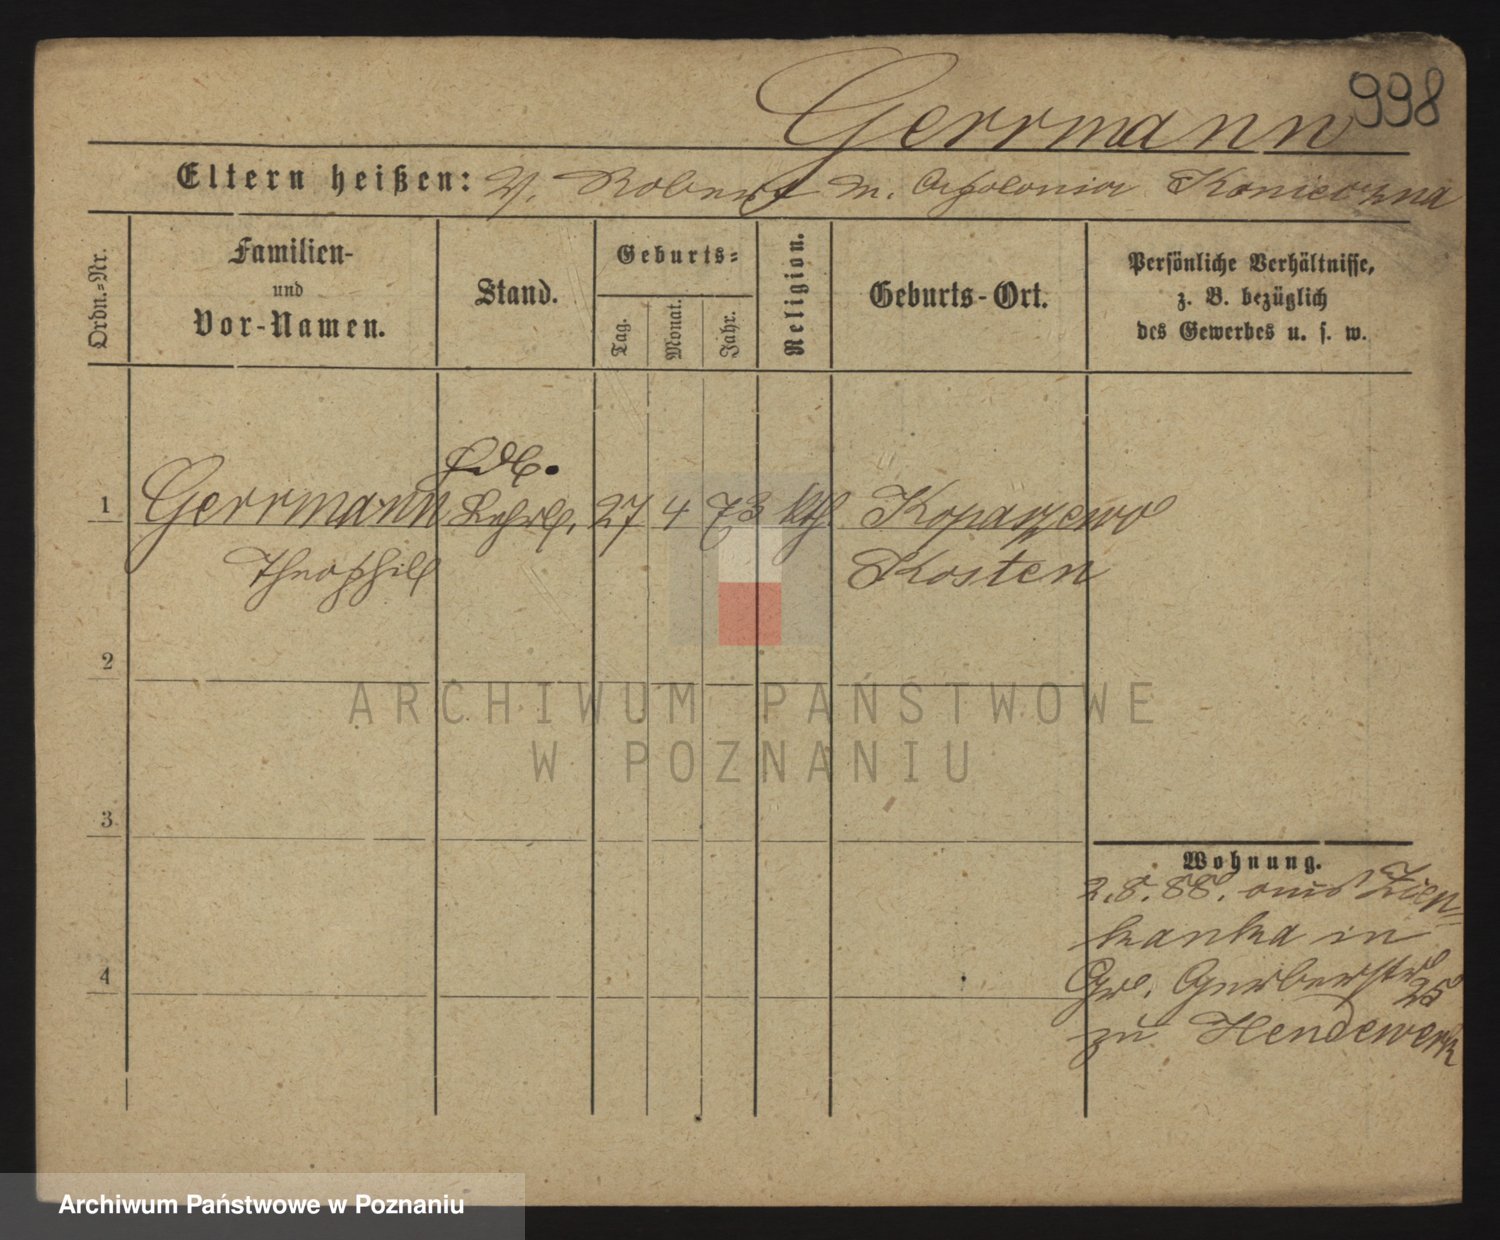 Gerrmann 998
Eltern heißen: V. Robert M. Apolonia Konieczna
Ordn.-Nr.
Familien-
und
Vor-Namen.
Stand.
Geburts-
Tag.
Monat.
Jahr.
Religion.
Geburts-Ort.
Persönliche Verhältnisse,
z. B. bezüglich
des Gewerbes u. s. w.
1 Gerrmann Lehrl. 27 4 73 kth. Koparzewo
Theophil Kosten
2
ARCHIWUM PAŃSTWOWE
W POZNANIU
3
Wohnung.
2.8.88. aus Zien-
kanka in
4
Gr. Gerberstr 25
zu Hendewerk
Archiwum Państwowe w Poznaniu